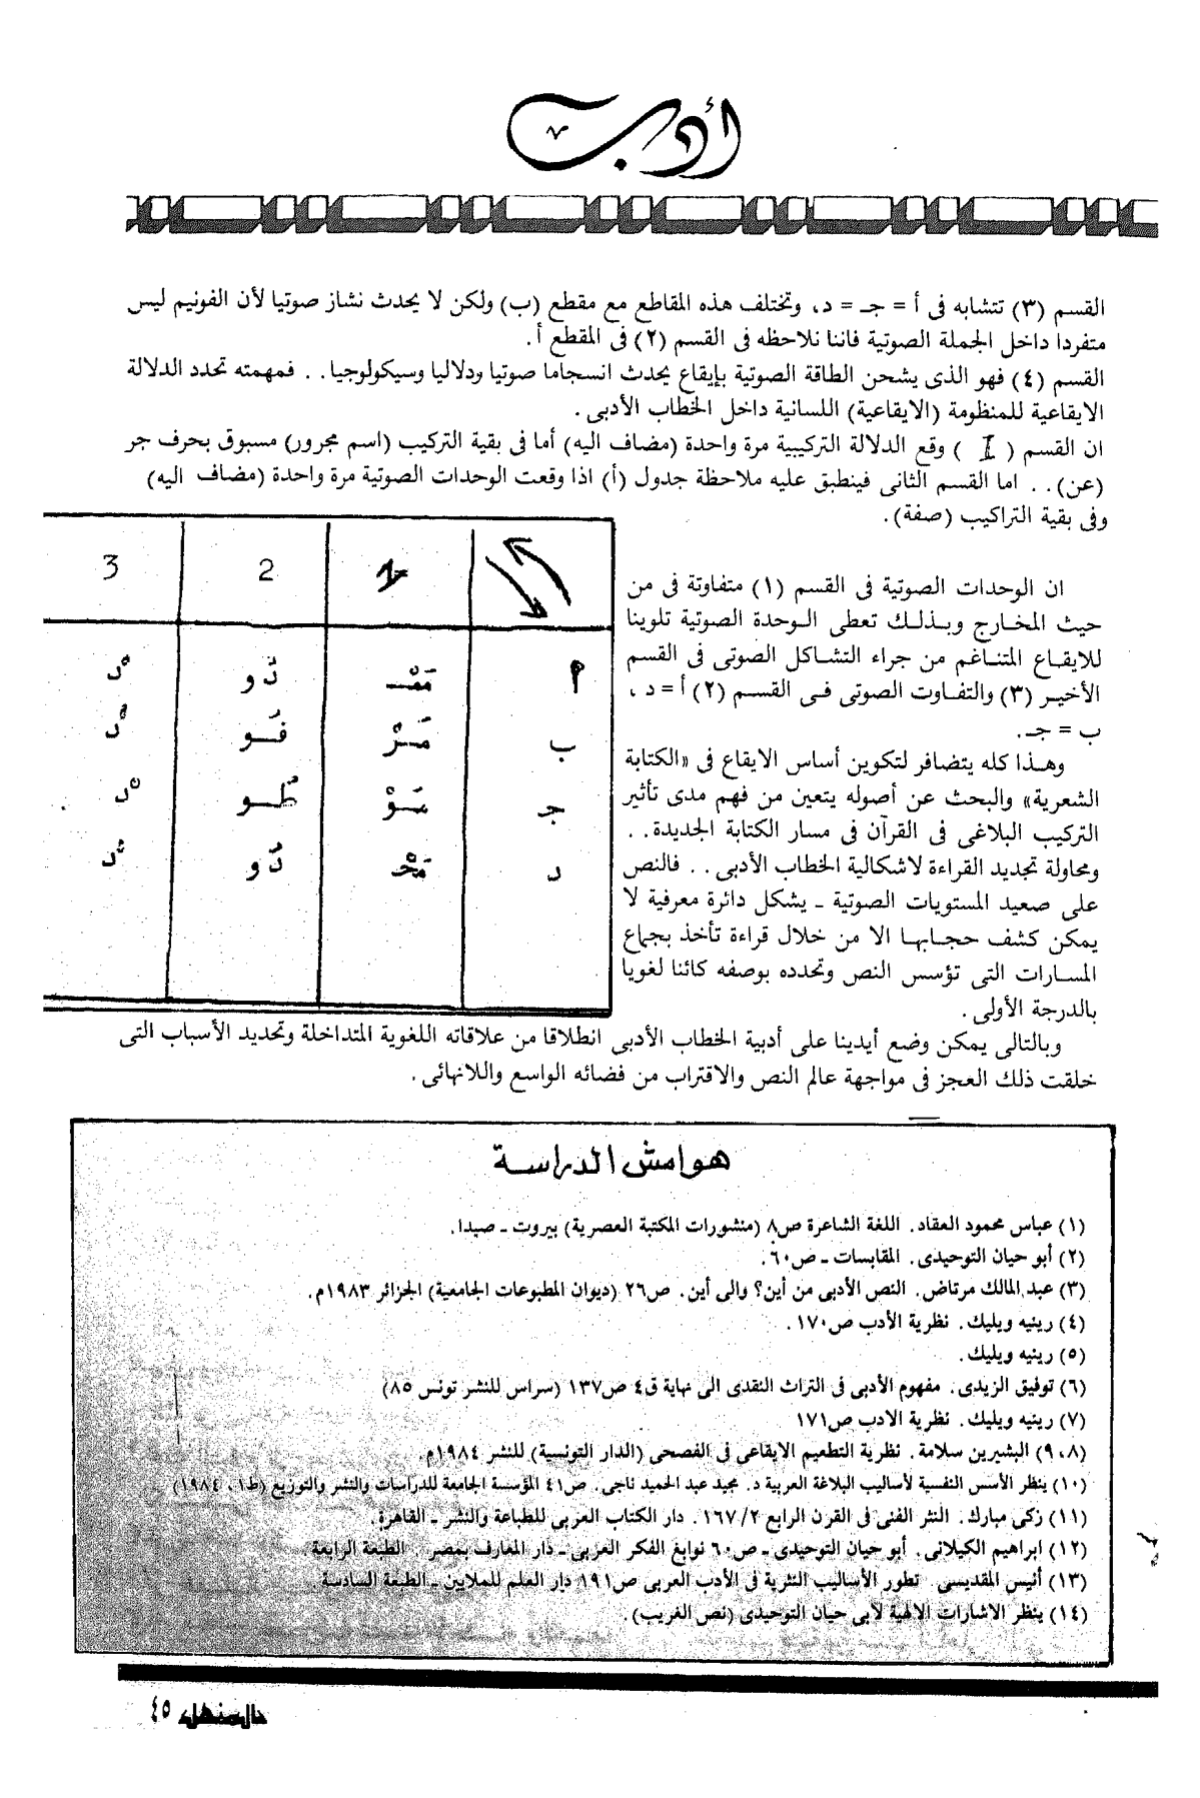 أدب
القسم (٣) تتشابه فى أ = جـ = د، وتختلف هذه المقاطع مع مقطع (ب) ولكن لا يحدث نشاز صوتيا لأن الفونيم ليس
متفردا داخل الجملة الصوتية فاننا نلاحظه فى القسم (٢) فى المقطع أ.
القسم (٤) فهو الذى يشحن الطاقة الصوتية بإيقاع يحدث انسجاما صوتيا ودلاليا وسيكولوجيا. . فمهمته تحدد الدلالة
الايقاعية للمنظومة (الايقاعية) اللسانية داخل الخطاب الأدبى .
ان القسم ( I ) وقع الدلالة التركيبية مرة واحدة (مضاف اليه) أما فى بقية التركيب (اسم مجرور) مسبوق بحرف جر
(عن). . اما القسم الثانى فينطبق عليه ملاحظة جدول (أ) اذا وقعت الوحدات الصوتية مرة واحدة (مضاف اليه)
وفى بقية التراكيب (صفة).
1 2 3
أ
ب
جـ
د
ان الوحدات الصوتية فى القسم (١) متفاوتة فى من
حيث المخارج وبذلك تعطى الوحدة الصوتية تلوينا
للايقاع المتناغم من جراء التشاكل الصوتى فى القسم
الأخير (٣) والتفاوت الصوتى فى القسم (٢) أ = د ،
ب = جـ .
وهذا كله يتضافر لتكوين أساس الايقاع فى «الكتابة
الشعرية» والبحث عن أصوله يتعين من فهم مدى تأثير
التركيب البلاغى فى القرآن فى مسار الكتابة الجديدة. .
ومحاولة تجديد القراءة لاشكالية الخطاب الأدبى . . فالنص
على صعيد المستويات الصوتية ـ يشكل دائرة معرفية لا
يمكن كشف حجابها الا من خلال قراءة تأخذ بجماع
المسارات التى تؤسس النص وتحدده بوصفه كائنا لغويا
بالدرجة الأولى .
وبالتالى يمكن وضع أيدينا على أدبية الخطاب الأدبى انطلاقا من علاقاته اللغوية المتداخلة وتحديد الأسباب التى
خلقت ذلك العجز فى مواجهة عالم النص والاقتراب من فضائه الواسع واللانهائى .
هوامش الدراسة
(١) عباس محمود العقاد. اللغة الشاعرة ص٨ (منشورات المكتبة العصرية) بيروت ـ صيدا.
(٢) أبو حيان التوحيدى. المقابسات ـ ص٦٠.
(٣) عبد المالك مرتاض. النص الأدبى من أين؟ والى أين. ص٢٦ (ديوان المطبوعات الجامعية) الجزائر ١٩٨٣م.
(٤) رينيه ويليك. نظرية الأدب ص١٧٠.
(٥) رينيه ويليك.
(٦) توفيق الزيدى. مفهوم الأدبى فى التراث النقدى الى نهاية ق٤ ص١٣٧ (سراس للنشر تونس ٨٥)
(٧) رينيه ويليك. نظرية الادب ص١٧١
(٩،٨) البشيرين سلامة. نظرية التطعيم الايقاعى فى الفصحى (الدار التونسية) للنشر ١٩٨٤م.
(١٠) ينظر الأسس النفسية لأساليب البلاغة العربية د. مجيد عبد الحميد ناجى. ص٤١ المؤسسة الجامعة للدراسات والنشر والتوزيع (ط١، ١٩٨٤)
(١١) زكى مبارك. النثر الفنى فى القرن الرابع ١٦٧/٢. دار الكتاب العربى للطباعة والنشر ـ القاهرة.
(١٢) ابراهيم الكيلانى. أبو حيان التوحيدى ـ ص٦٠ نوابغ الفكر العربى ـ دار المعارف بمصر . الطبعة الرابعة.
(١٣) أنيس المقديسى. تطور الأساليب النثرية فى الأدب العربى ص١٩١ دار العلم للملايين ـ الطبعة السادسة.
(١٤) ينظر الاشارات الالهية لأبى حيان التوحيدى (نص الغريب).
المنهل ٤٥